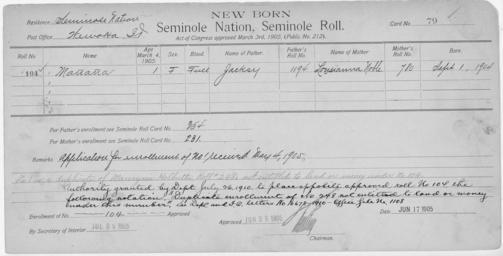 NEW BORN
Residence Seminole Nation
Seminole Nation, Seminole Roll.
Card No. 79
Post Office Wewoka, I.T.
Act of Congress approved March 3rd, 1905, (Public No. 212).
Roll No. Name Age March 4, 1905 Sex. Blood. Name of Father. Father's Roll No. Name of Mother Mother's Roll No. Born.
104 1 F Full Jacksy 1194 Louisianna Noble 780 Sept 1 1904
For Father's enrollment see Seminole Roll Card No. 354
For Mother's enrollment see Seminole Roll Card No. 231
Remarks Application for enrollment of No 1 received May 4, 1905.
No 1 is a duplicate of not entitled to land or money under No 104
Authority granted by Dept July 26, 1910, to place opposite approved roll No 104 the
following notation, "Duplicate enrollment of No 248 not entitled to land or money
under this number." See Dept and I.O. letters 1910 - Office file No 1108
Enrollment of No 104 Approved
Approved
Date JUN 17 1905
By Secretary of Interior
Chairman.